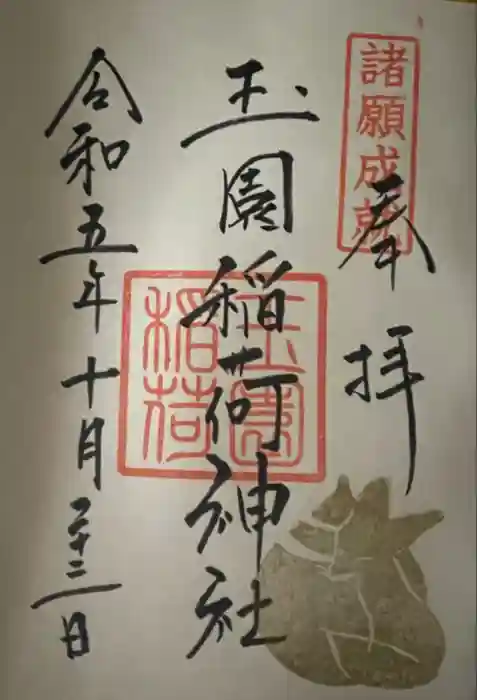 諸願成就
奉拝
玉園稲荷神社
玉園
稲荷
令和五年十月二十二日